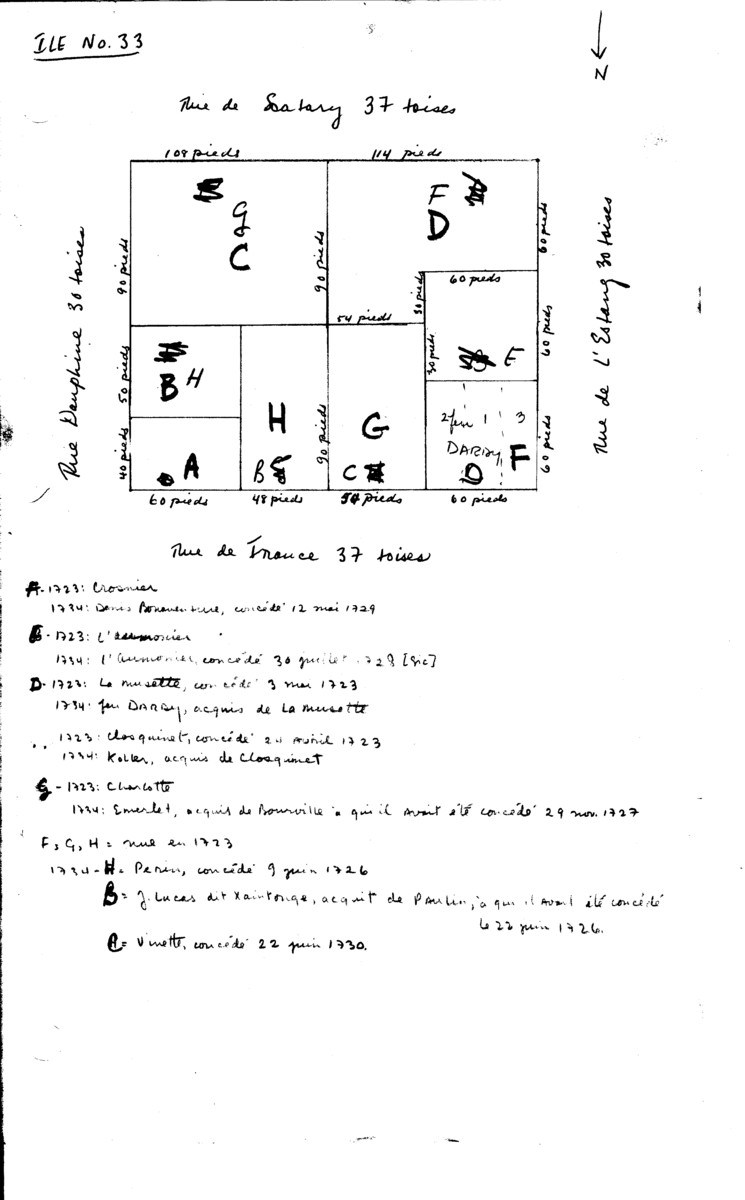 ILE No. 33
N
Rue de Scatary 37 toises
108 pieds
114 pieds
Rue Dauphine 30 toises
Rue de L'Estang 30 toises
90 pieds
G
C
90 pieds
F
D
60 pieds
30 pieds
60 pieds
54 pieds
50 pieds
B H
30 pieds
E
60 pieds
40 pieds
A
H
B
90 pieds
G
C
2 feu 1 3
DARBY
D
F
60 pieds
60 pieds
48 pieds
54 pieds
60 pieds
Rue de France 37 toises
A - 1723: Crosnier
1734: Denis Bonaventure, concédé 12 mai 1729
B - 1723: L'aumonier
1734: l'aumonier, concédé 30 juillet 1728 [sic]
D - 1723: La Musette, concédé 3 mai 1723
1734: feu DARBY, acquis de La Musette
1723: Closquinet, concédé 24 Avril 1723
1734: Koller, acquis de Closquinet
G - 1723: Charlotte
1734: Emerlet, acquis de Bourville à qui il avait été concédé 29 nov. 1727
F, G, H = nue en 1723
1734 - H = Perin, concédé 9 juin 1726
B = J. Lucas dit Xaintonge, acquit de Paulin, à qui il avait été concédé
le 22 juin 1726.
A = Vinette, concédé 22 juin 1730.